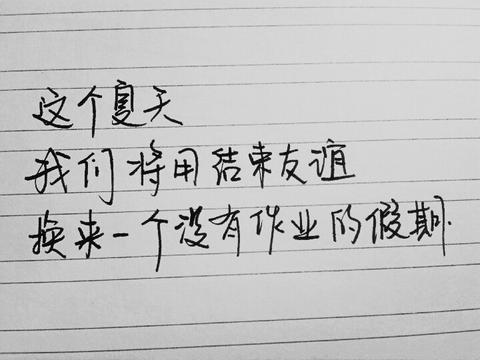 这个夏天
我们将用结束友谊
换来一个没有作业的假期.